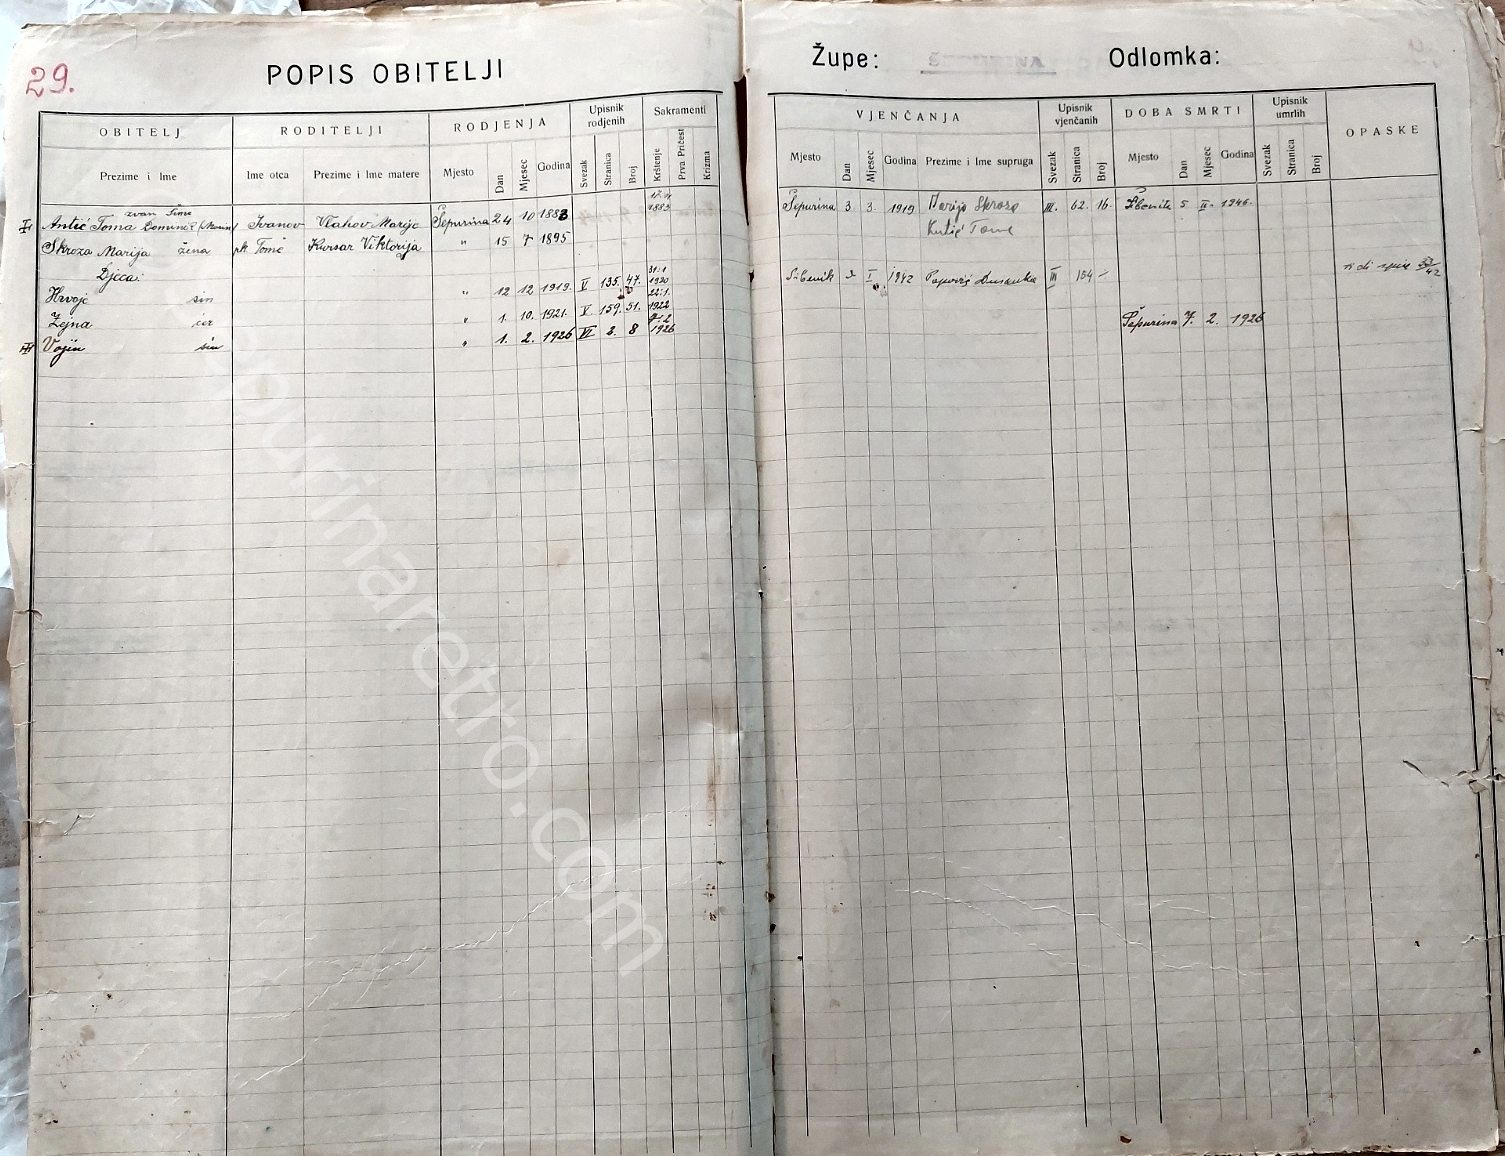 29.
POPIS OBITELJI
Župe: ŠEPURINA Odlomka:
OBITELJ RODITELJI RODJENJA Upisnik rodjenih Sakramenti
Prezime i Ime Ime otca Prezime i Ime matere Mjesto Dan Mjesec Godina Svezak Stranica Broj Krštenje Prva Pričest Krizma
VJENČANJA Upisnik vjenčanih DOBA SMRTI Upisnik umrlih OPASKE
Mjesto Dan Mjesec Godina Prezime i Ime supruga Svezak Stranica Broj Mjesto Dan Mjesec Godina Svezak Stranica Broj
zvan Šime
Antić Toma Ivanov Vlahov Marija Šepurina 24 10 1883 1883
Šepurina 3. 3. 1919 Marija Skroza III. 62. 16. Šibenik 5 II. 1946.
Antić Toma
Skroza Marija žena pk. Tomè Kursar Viktorija " 15 7 1895
Djeca:
Hrvoje sin " 12 12 1919. V 135. 47. 31.1 1920
Šibenik 2 I 1942 Popović Dusanka III 154 -
Zejna ćer " 1. 10. 1921. V 159. 51. 22.1. 1922
Šepurina 7. 2. 1926
III Vojin sin " 1. 2. 1926 VI 3. 8 7.2 1926
sepurinaretro.com